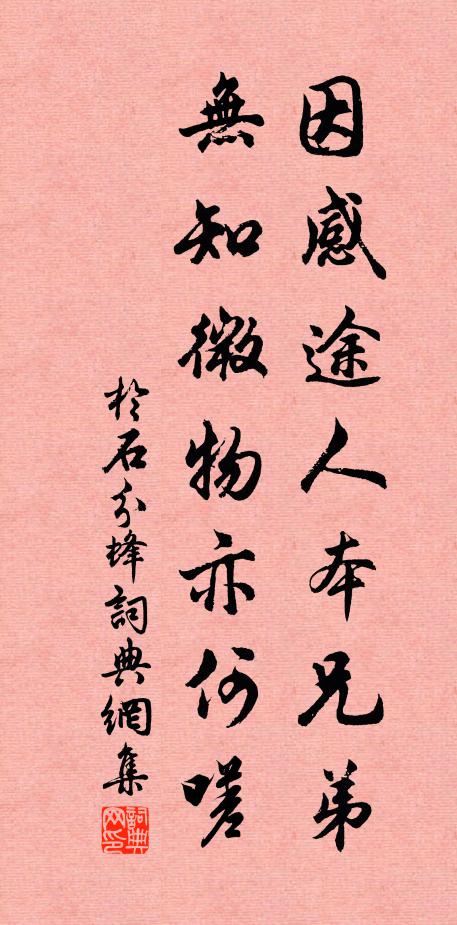 因感途人本兄弟
無知微物亦何嗟
於石分蜂詞典網集
詞典网印